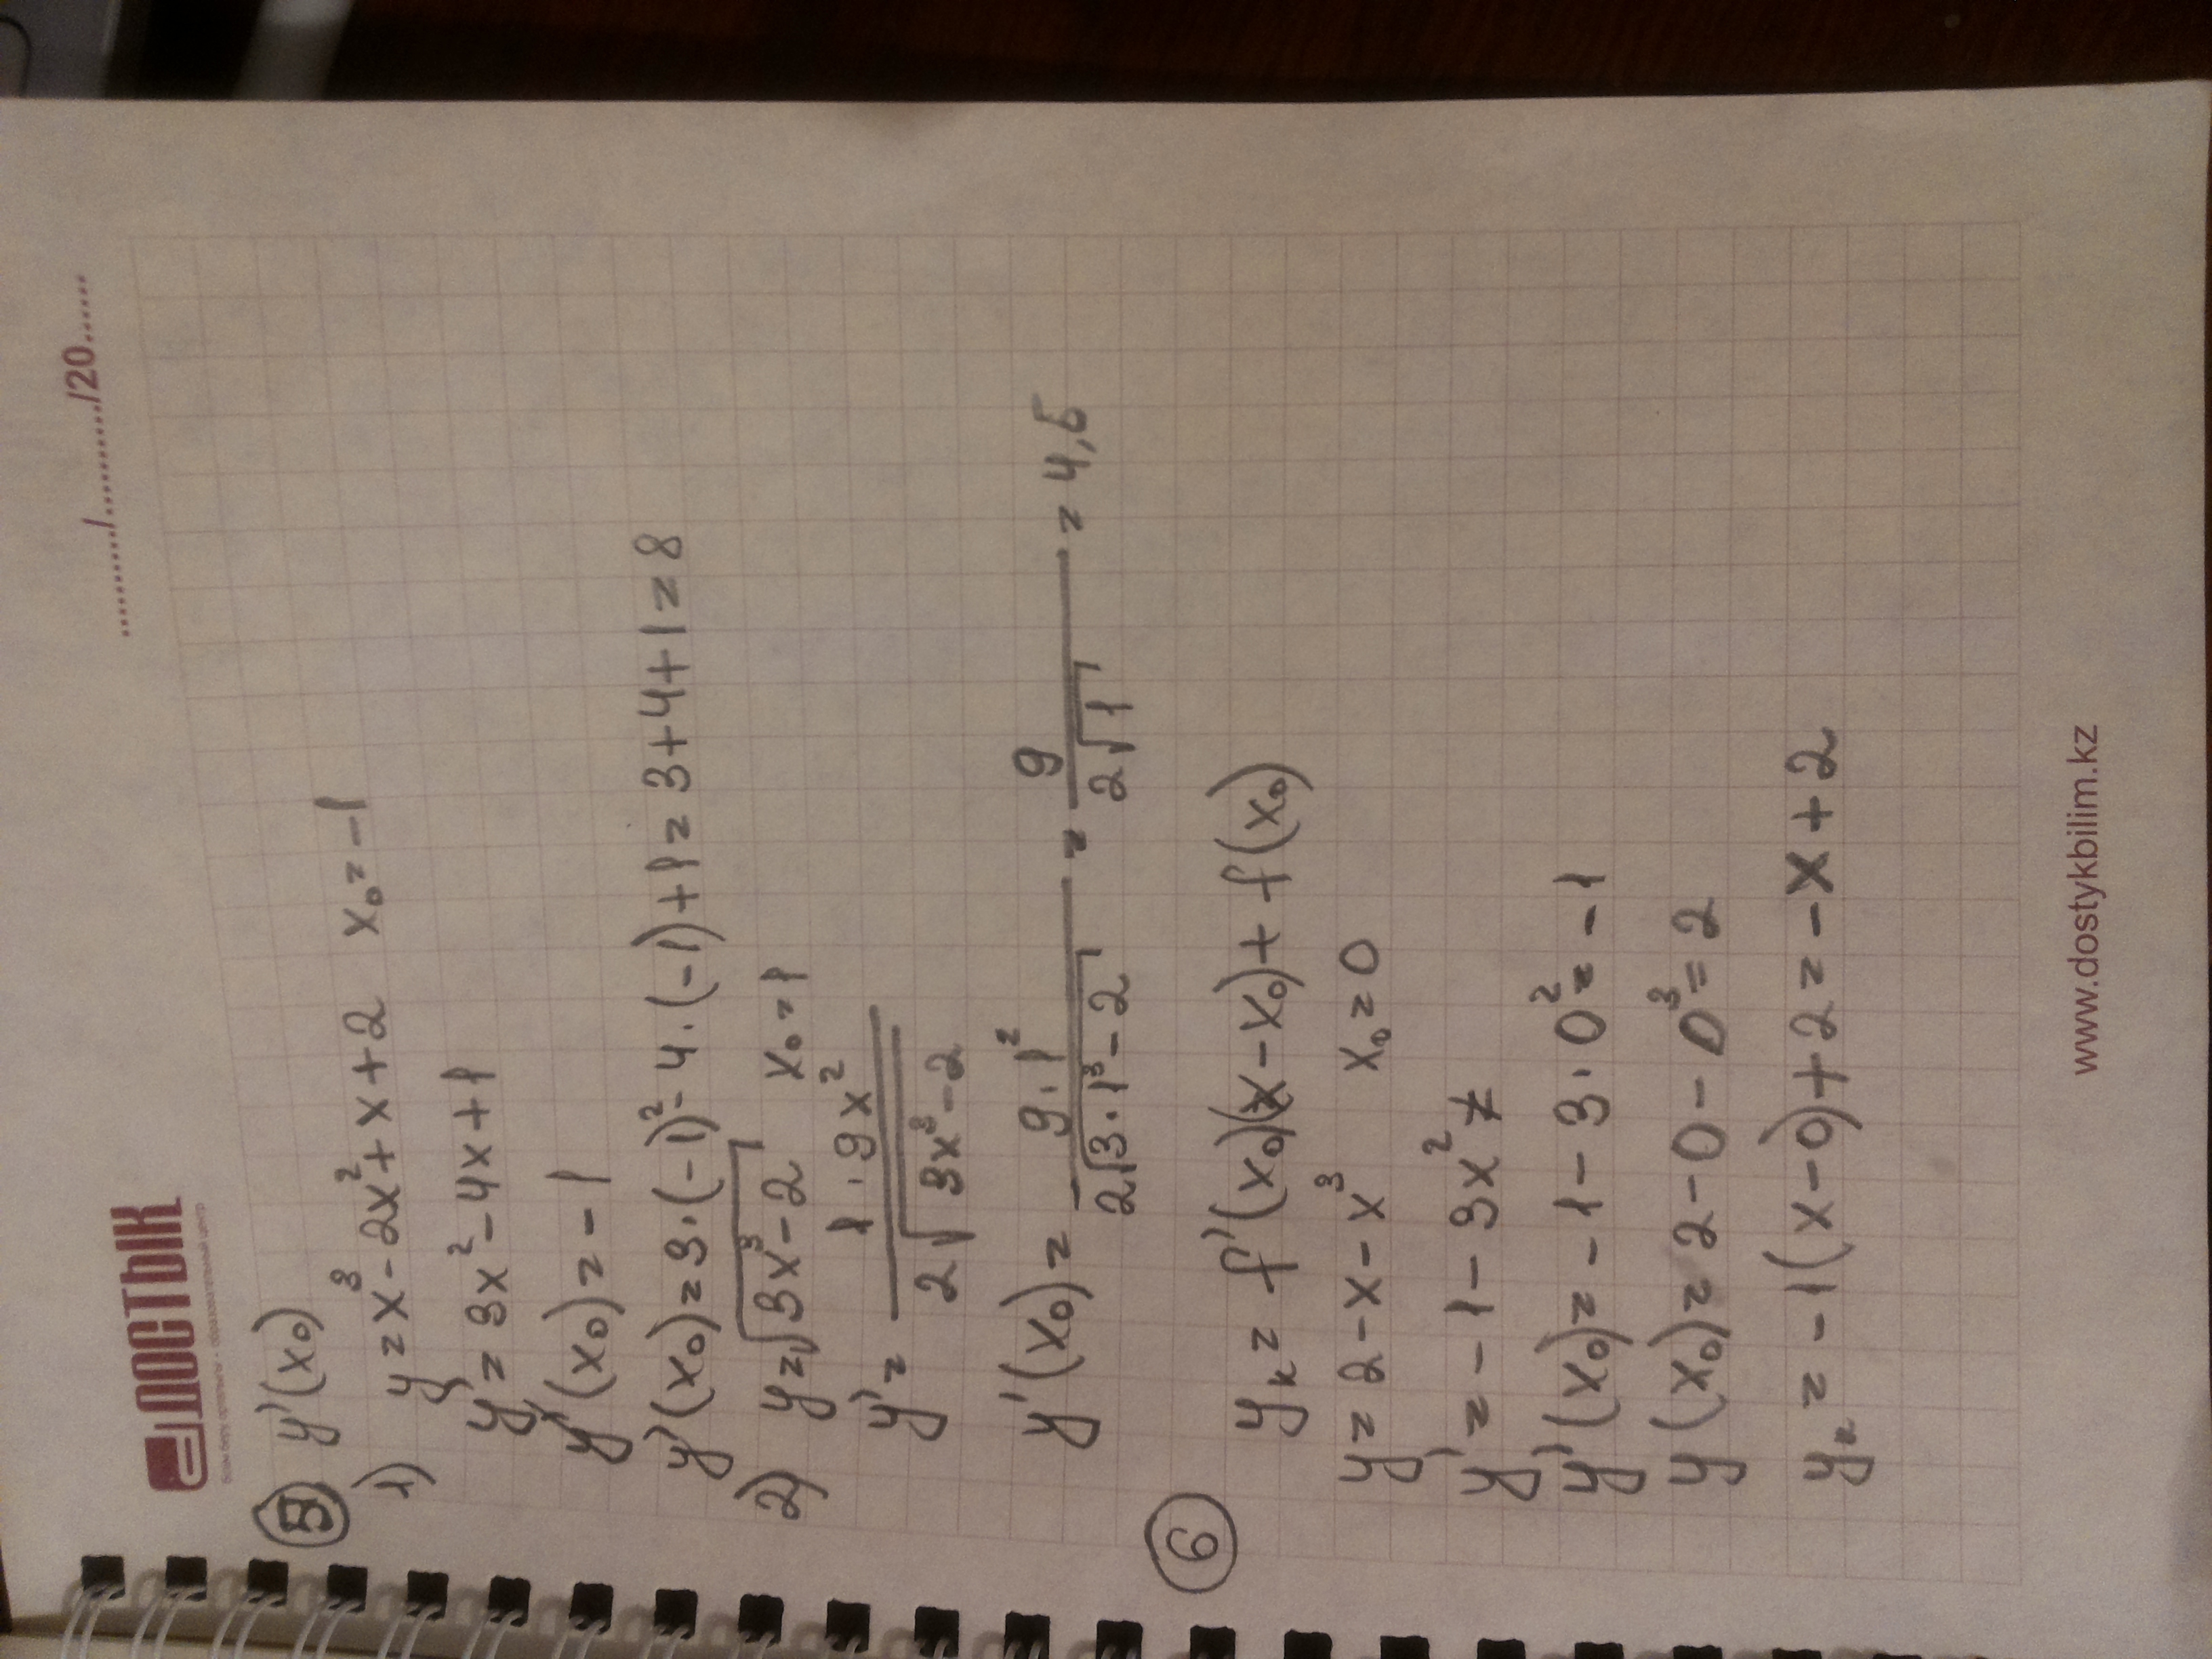 ДОСТЫК
........../............/20......
5 y'(x₀)
1) y = x³ - 2x² + x + 2 x₀ = -1
y' = 3x² - 4x + 1
y'(x₀) = -1
y'(x₀) = 3·(-1)² - 4·(-1) + 1 = 3 + 4 + 1 = 8
2) y = √(3x³ - 2) x₀ = 1
y' = (1·9x²)/(2√(3x³ - 2))
y'(x₀) = (9·1²)/(2√(3·1³ - 2)) = 9/(2√1) = 4,5
6 yₖ = f'(x₀)(x - x₀) + f(x₀)
y = 2 - x - x³ x₀ = 0
y' = -1 - 3x² ≠
y'(x₀) = -1 - 3·0² = -1
y(x₀) = 2 - 0 - 0³ = 2
yₖ = -1(x - 0) + 2 = -x + 2
www.dostykbilim.kz